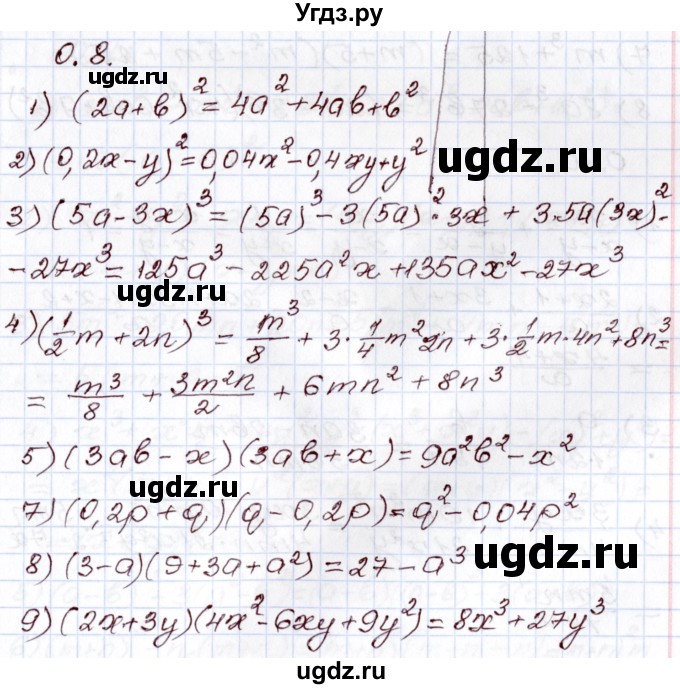 Угдз.ру
0.8.
ugdz.ru
1) (2a+b)² = 4a²+4ab+b²
2) (0,2x-y)² = 0,04x²-0,4xy+y²
ugdz.ru
3) (5a-3x)³ = (5a)³ - 3(5a)²·3x + 3·5a(3x)² -
- 27x³ = 125a³ - 225a²x + 135ax² - 27x³
ugdz.ru
ugdz.ru
4) (1/2 m + 2n)³ = m³/8 + 3·1/4 m² 2n + 3·1/2 m·4n² + 8n³ =
= m³/8 + 3m²n/2 + 6mn² + 8n³
5) (3ab - x)(3ab + x) = 9a²b² - x²
ugdz.ru
7) (0,2p + q)(q - 0,2p) = q² - 0,04p²
ugdz.ru
8) (3-a)(9+3a+a²) = 27 - a³
9) (2x+3y)(4x²-6xy+9y²) = 8x³+27y³
ugdz.ru